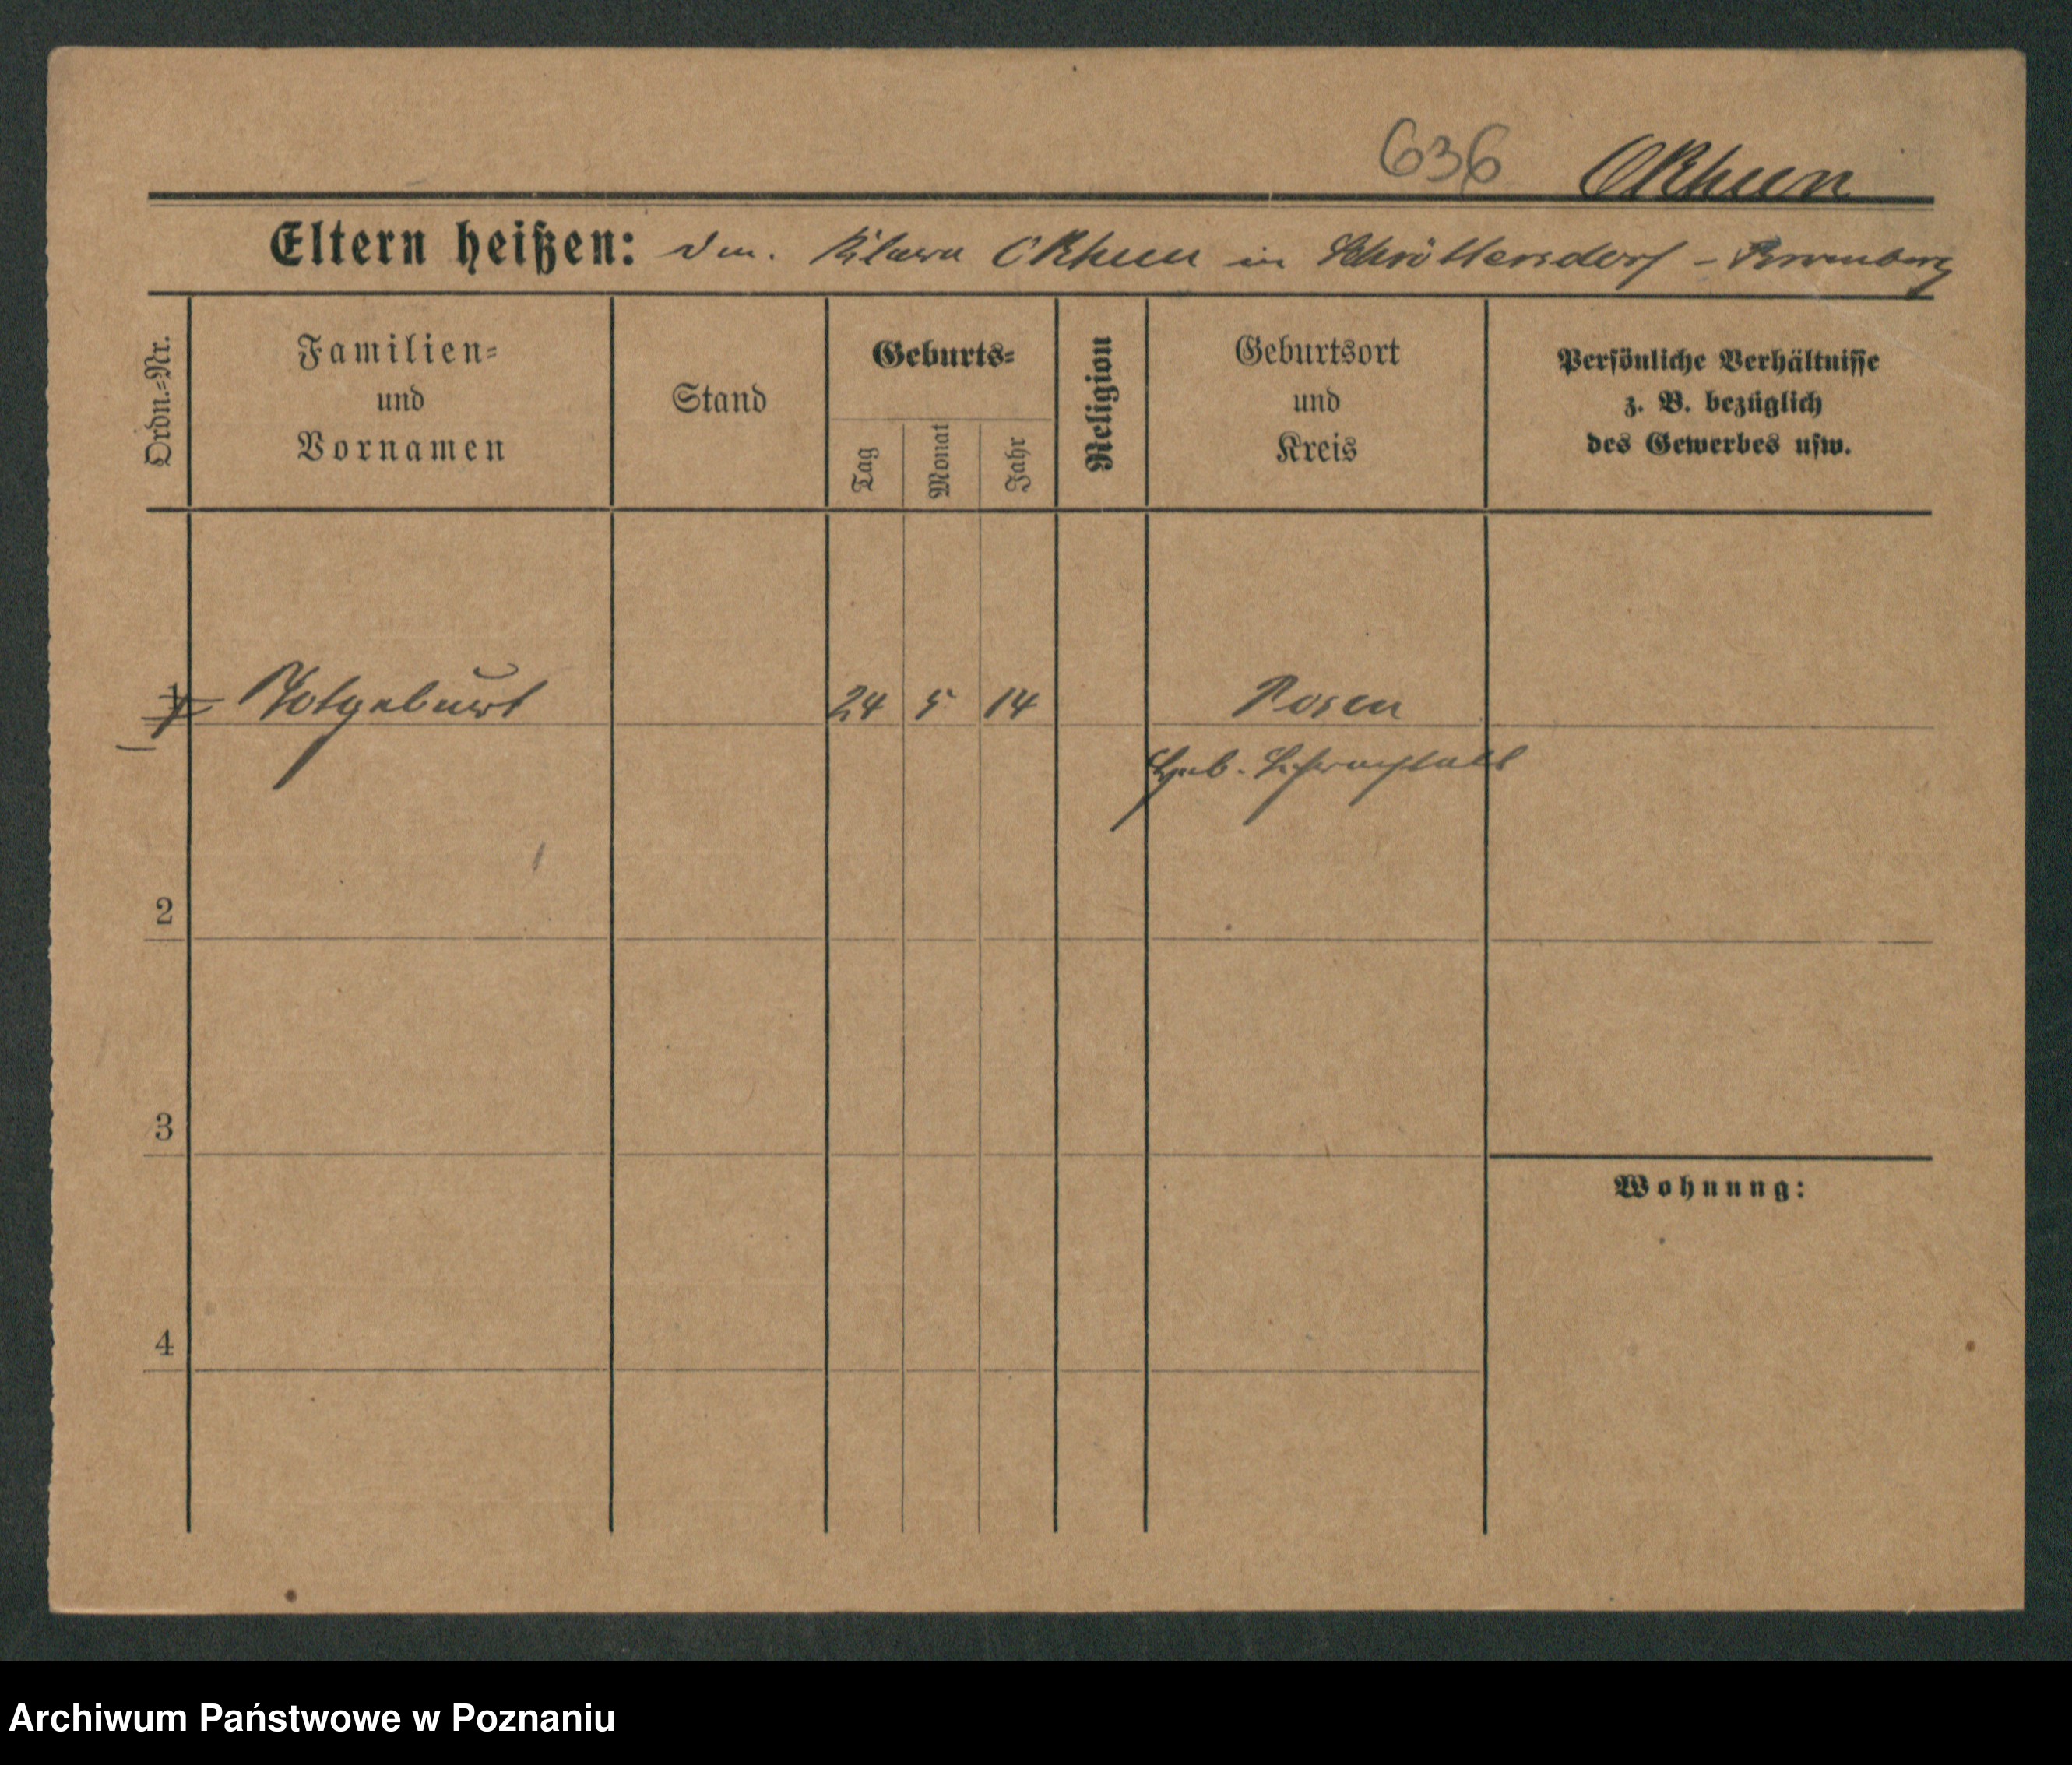 636 Okhun
Eltern heißen: Klara Okhun in Schröttersdorf - Bromberg
Ordn.-Nr.
Familien-
und
Vornamen
Stand
Geburts-
Tag
Monat
Jahr
Religion
Geburtsort
und
Kreis
Persönliche Verhältnisse
z. B. bezüglich
des Gewerbes usw.
1 Totgeburt 24 5 14 Posen
Heb. Lehranstalt
2
3
Wohnung:
4
Archiwum Państwowe w Poznaniu